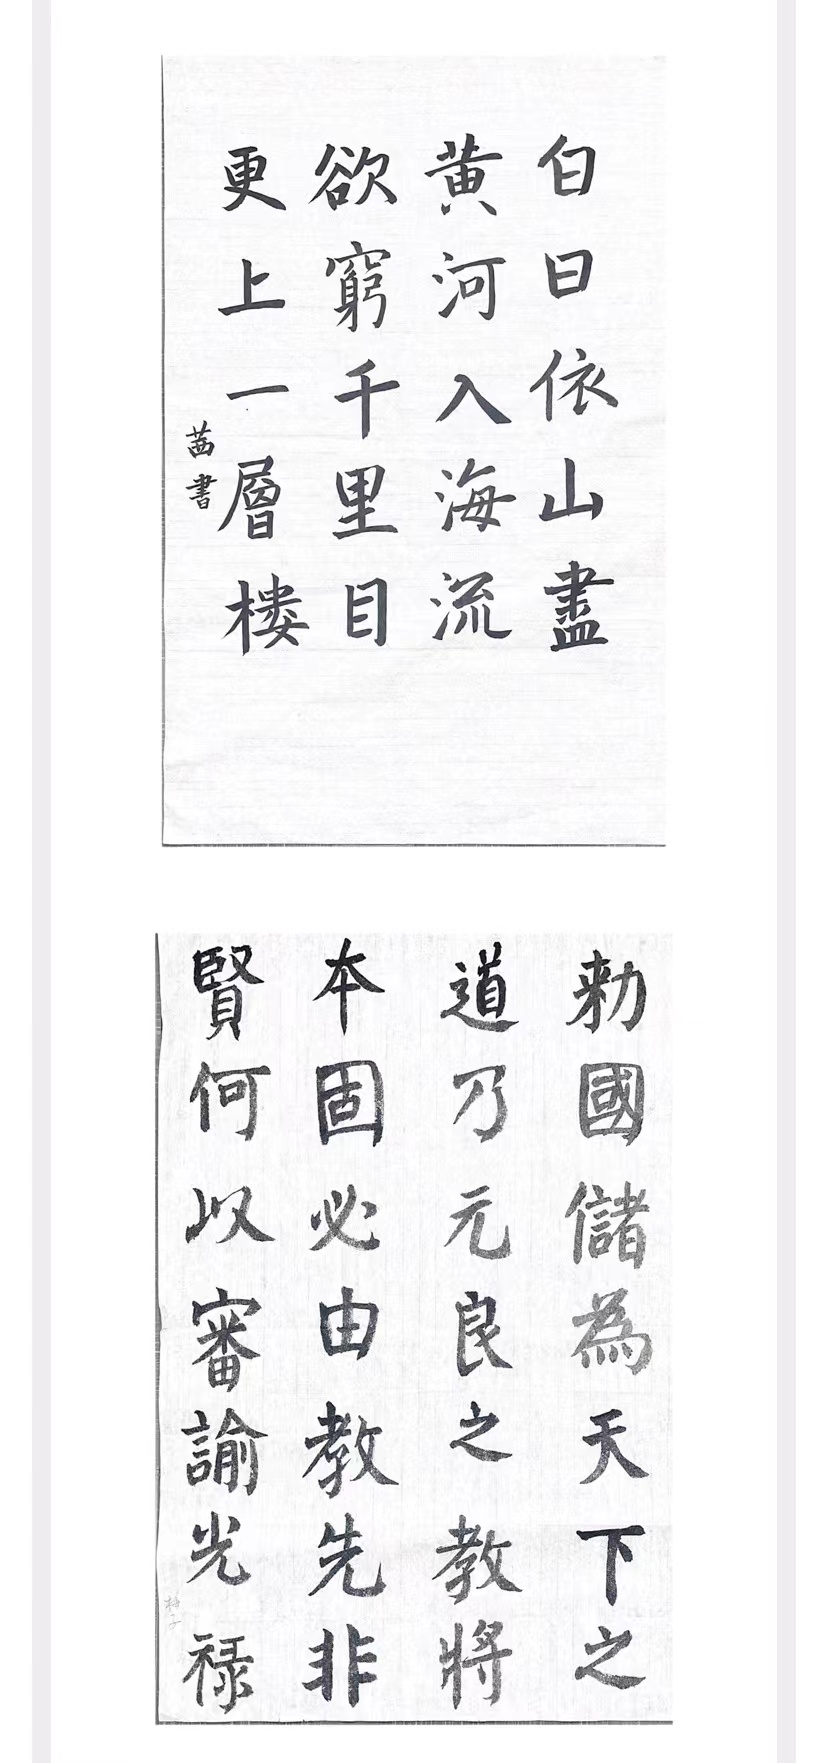 白日依山盡
黃河入海流
欲窮千里目
更上一層樓
茜書
勑國儲為天下之
道乃元良之教將
本固必由教先非
賢何以審諭光禄
柚子